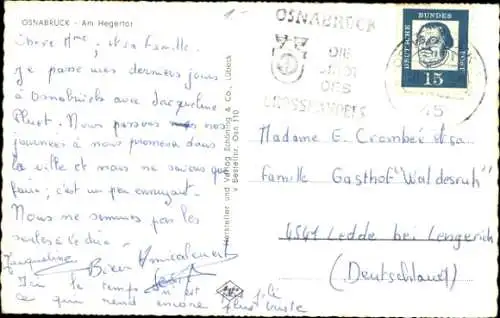 OSNABRÜCK - Am Hegertor
Chère Mme, et sa famille.
Je passe mes derniers jours
à Osnabrück avec Jacqueline
Nous passons nos
journées à nous promener dans
la ville et nous ne savons que
faire; c'est un peu ennuyant.
Nous ne sommes pas les
seules à le dire.
Jacqueline Bises Amicalement
Ici le temps n'est pas joli
ce qui rend encore plus triste
Hersteller und Verlag Schöning & Co., Lübeck
Bestellnr. Osn 110
OSNABRÜCK
DIE
STADT
DES
GROSSHANDELS
DEUTSCHE BUNDESPOST
15
45
Madame E. Crombei et sa
famille Gasthof "Waldesruh"
4541 Ledde bei Lengerich
(Deutschland)